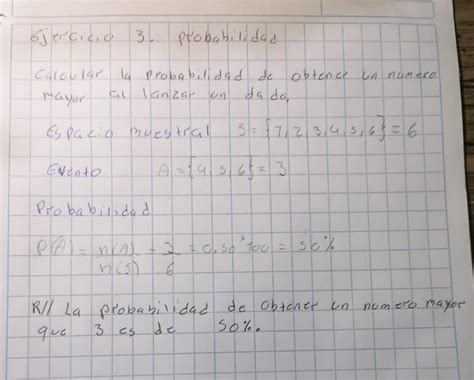 Ejercicio 3. Probabilidad
Calcular la probabilidad de obtener un numero
mayor al lanzar un dado.
Espacio muestral S = {1, 2, 3, 4, 5, 6} = 6
Evento A = {4, 5, 6} = 3
Probabilidad
P(A) = n(A)/n(S) = 3/6 = 0.50*100 = 50%
R// La probabilidad de obtener un numero mayor
que 3 es de 50%.